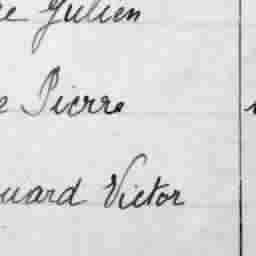 e Julien
e Pierre
ouard Victor